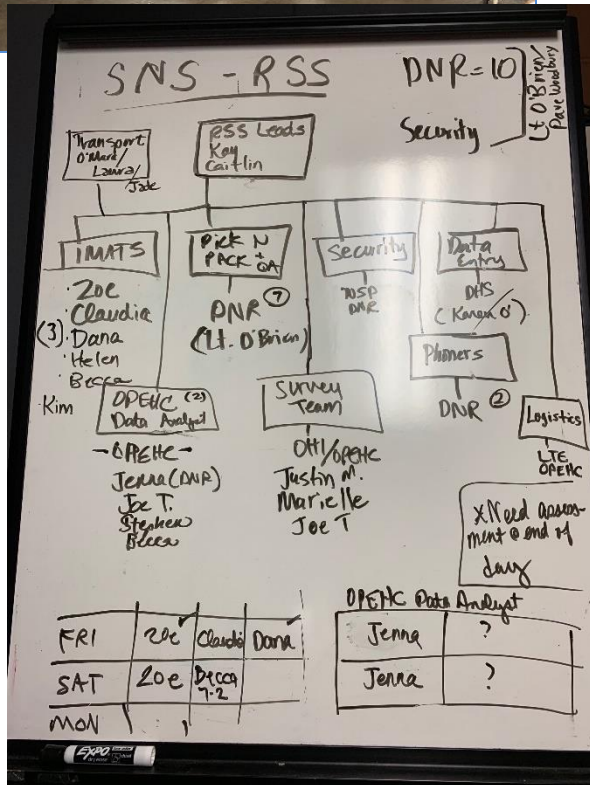 SNS - RSS
DNR = 10
Security
Lt O'Brien/
Dave Woodbury
Transport
O'Mara/
Laura/
Jade
RSS Leads
Kay
Caitlin
IMATS
Zoe
Claudia
(3) Dana
Helen
Becca
Kim
Pick N
PACK + QA
DNR 7
(Lt. O'Brien)
Security
DNR
Data
Entry
DHS
(Karen O')
Phoners
DNR 2
Logistics
LTE
OPEHC
OPEHC (2)
Data Analyst
- OPEHC -
Jenna (DNR)
Joe T.
Stephen
Becca
Survey
Team
OHI/OPEHC
Justin M.
Marielle
Joe T
*Need assess-
ment @ end of
day
FRI Zoe Claudia Dana
SAT Zoe Becca
7-2
MON
OPEHC Data Analyst
Jenna ?
Jenna ?
EXPO